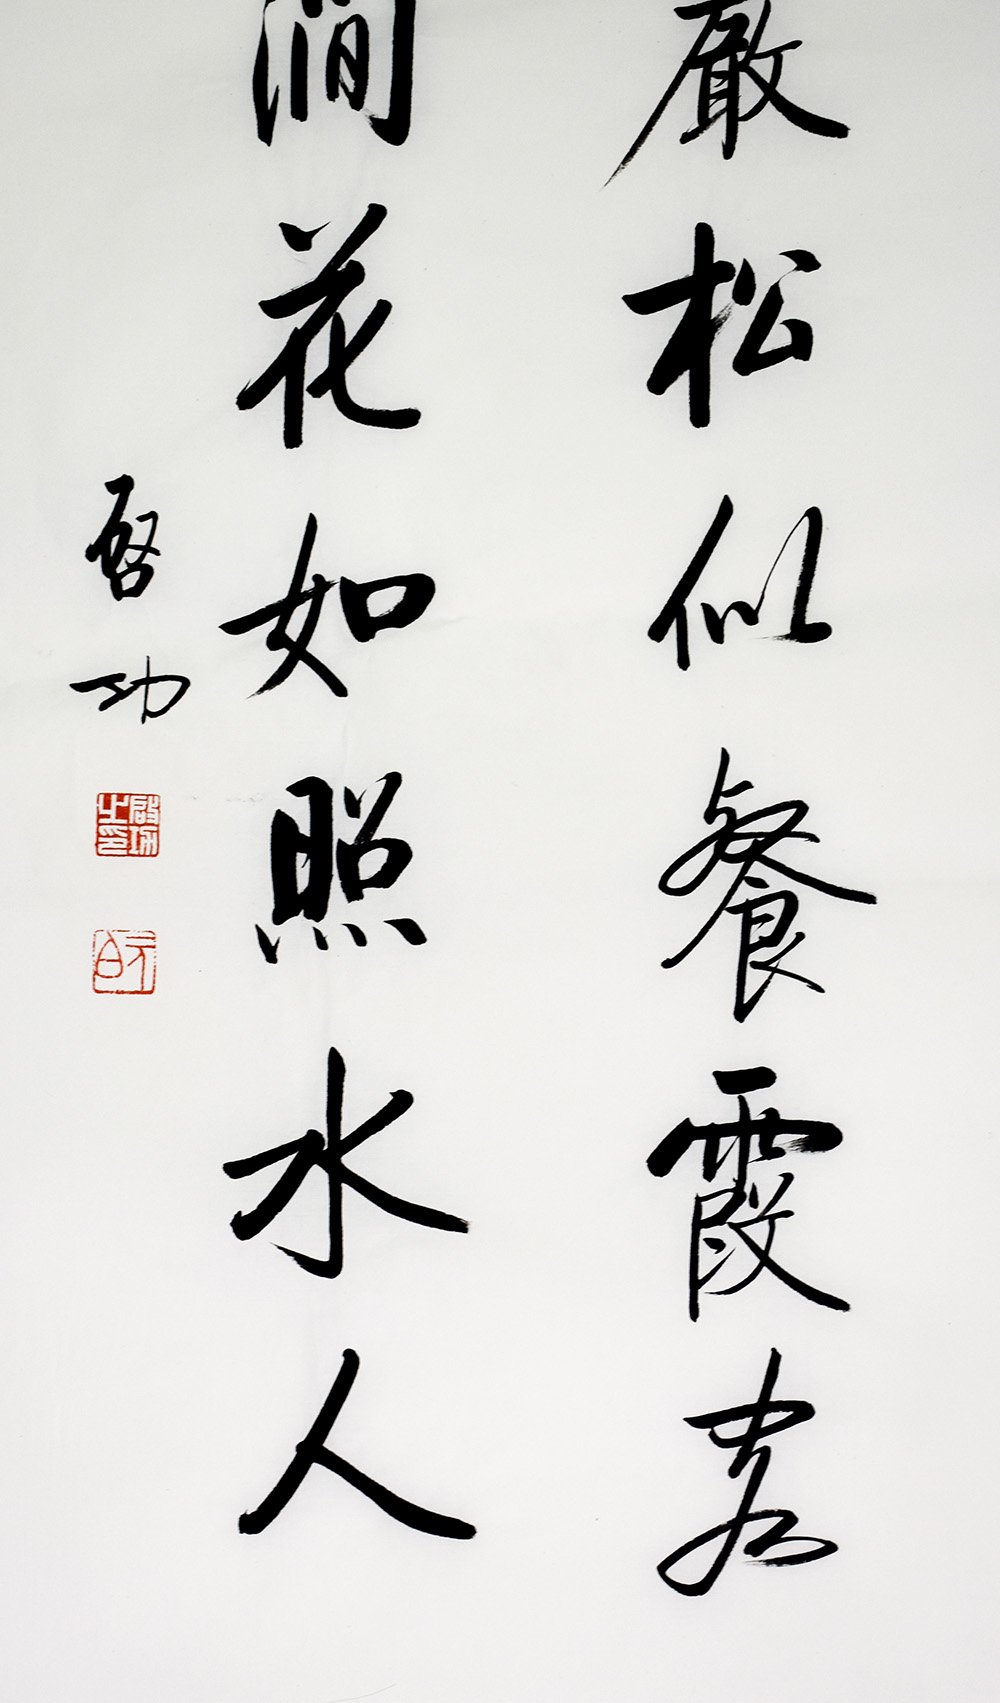 巖松似餐霞客
澗花如照水人
啓功
啟功之印
元白